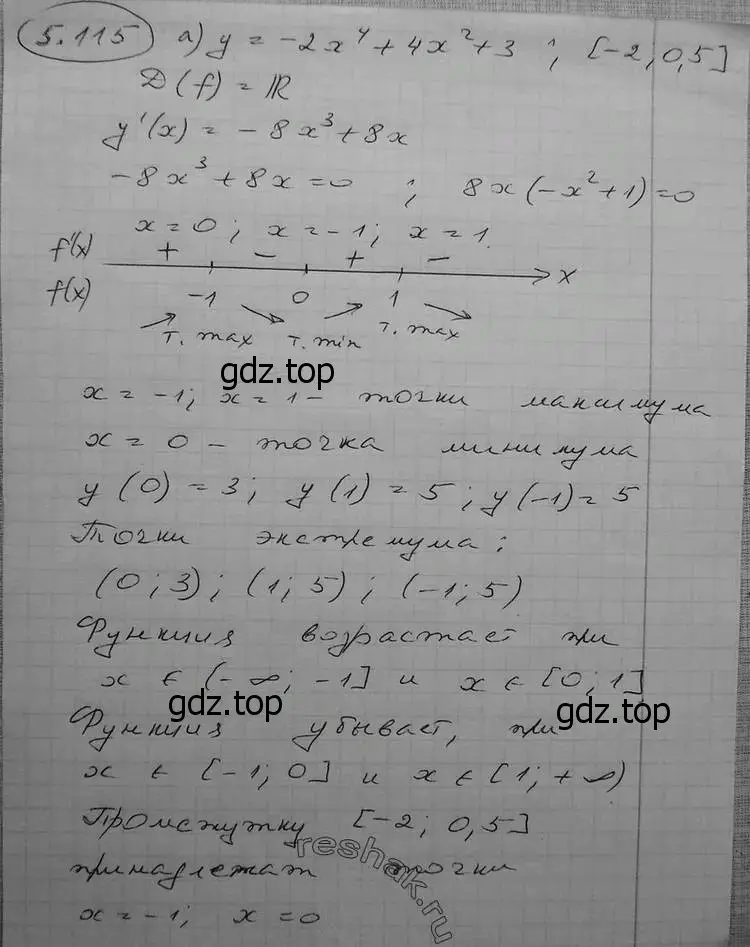 5.115 а) y = -2x⁴ + 4x² + 3 ; [-2; 0,5]
D(f) = ℝ
y'(x) = -8x³ + 8x
-8x³ + 8x = 0 ; 8x(-x² + 1) = 0
x = 0 ; x = -1 ; x = 1
f'(x) + - + -
x
f(x) -1 0 1
т. max т. min т. max
gdz.top
x = -1; x = 1 - точки максимума
x = 0 - точка минимума
y(0) = 3; y(1) = 5; y(-1) = 5
Точки экстремума:
(0; 3); (1; 5); (-1; 5)
Функция возрастает при
x ∈ (-∞; -1] и x ∈ [0; 1]
gdz.top gdz.top
Функция убывает, при
x ∈ [-1; 0] и x ∈ [1; +∞)
Промежутку [-2; 0,5]
принадлежат точки
reshak.ru
x = -1; x = 0